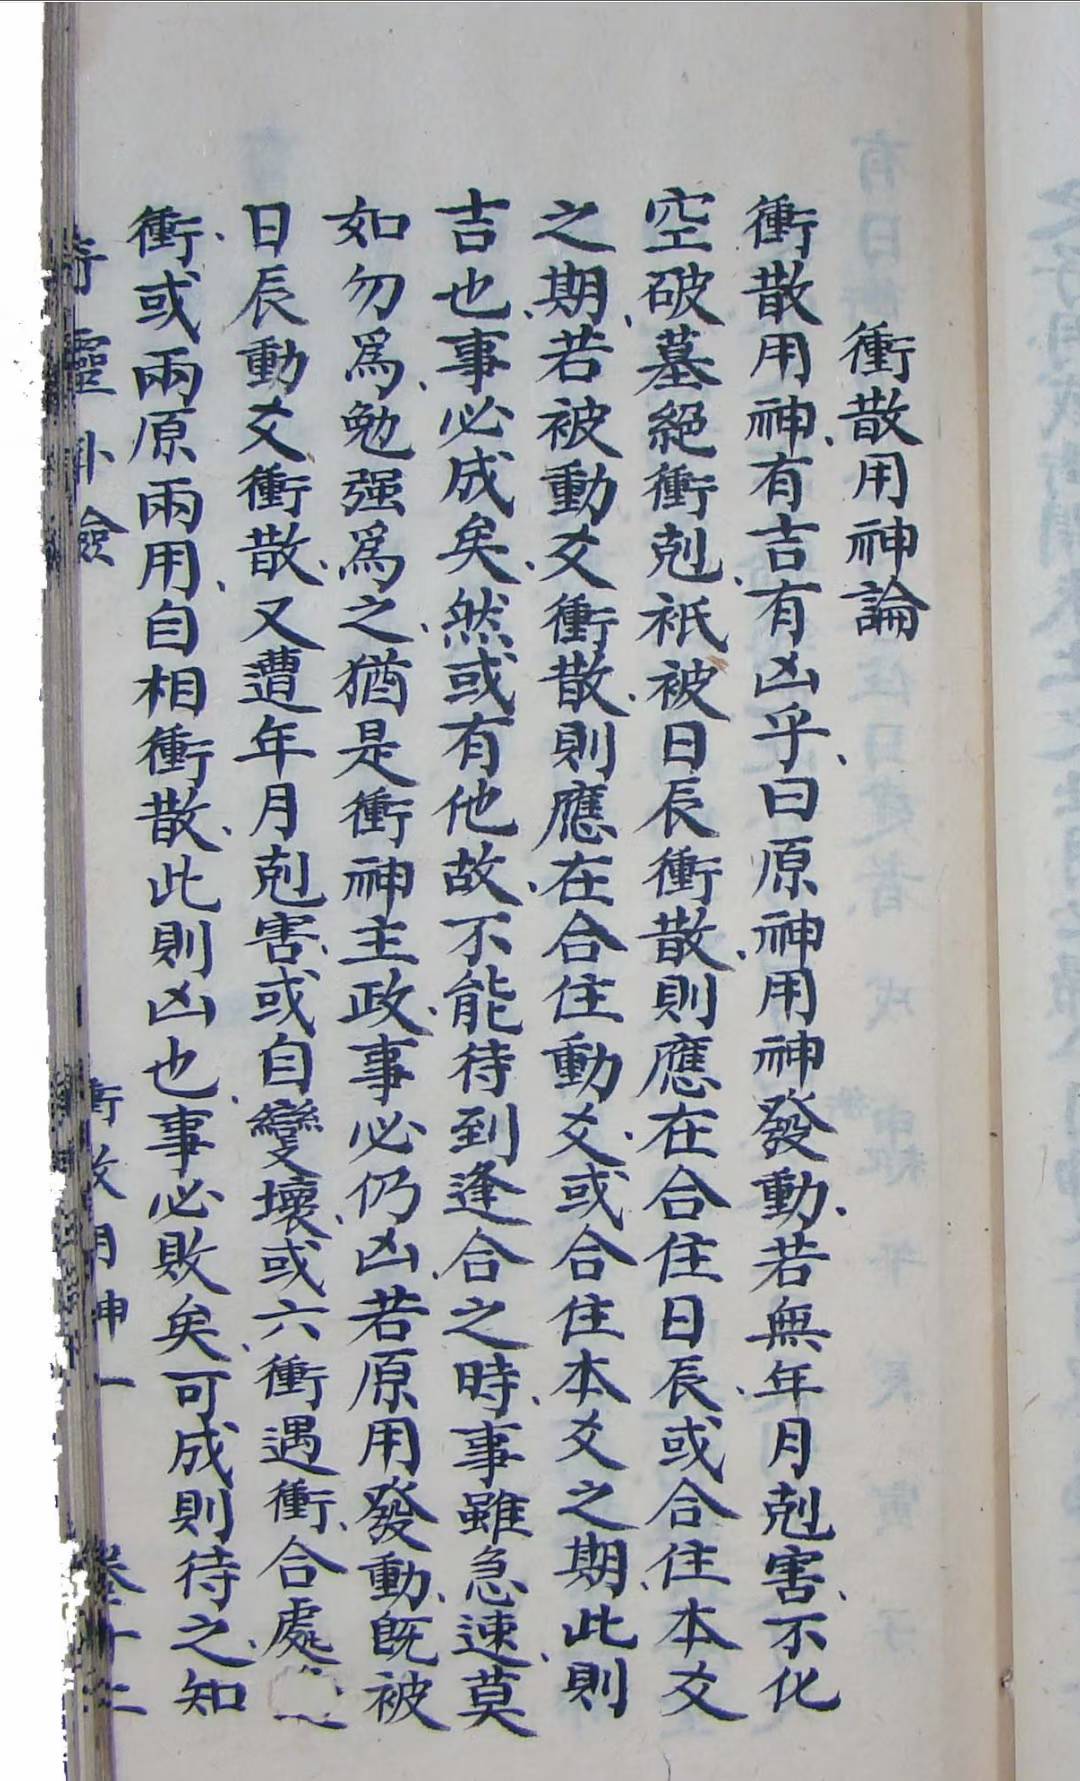 衝散用神論
衝散用神、有吉有凶乎、曰原神用神發動、若無年月剋害、不化
空破墓絕衝剋、祇被日辰衝散、則應在合住日辰、或合住本爻
之期、若被動爻衝散、則應在合住動爻、或合住本爻之期、此則
吉也、事必成矣、然或有他故、不能待到逢合之時、事雖急速、莫
如勿爲、勉强爲之、猶是衝神主政、事必仍凶、若原用發動、旣被
日辰動爻衝散、又遭年月剋害、或自變壞、或六衝遇衝、合處
衝、或兩原兩用、自相衝散、此則凶也、事必敗矣、可成則待之、知
靈卦險
衝散用神一
卷十二